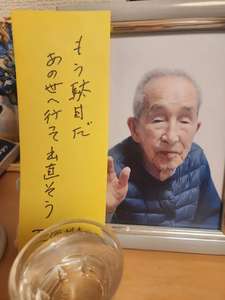 もう駄目だ
あの世へ行って出直そう